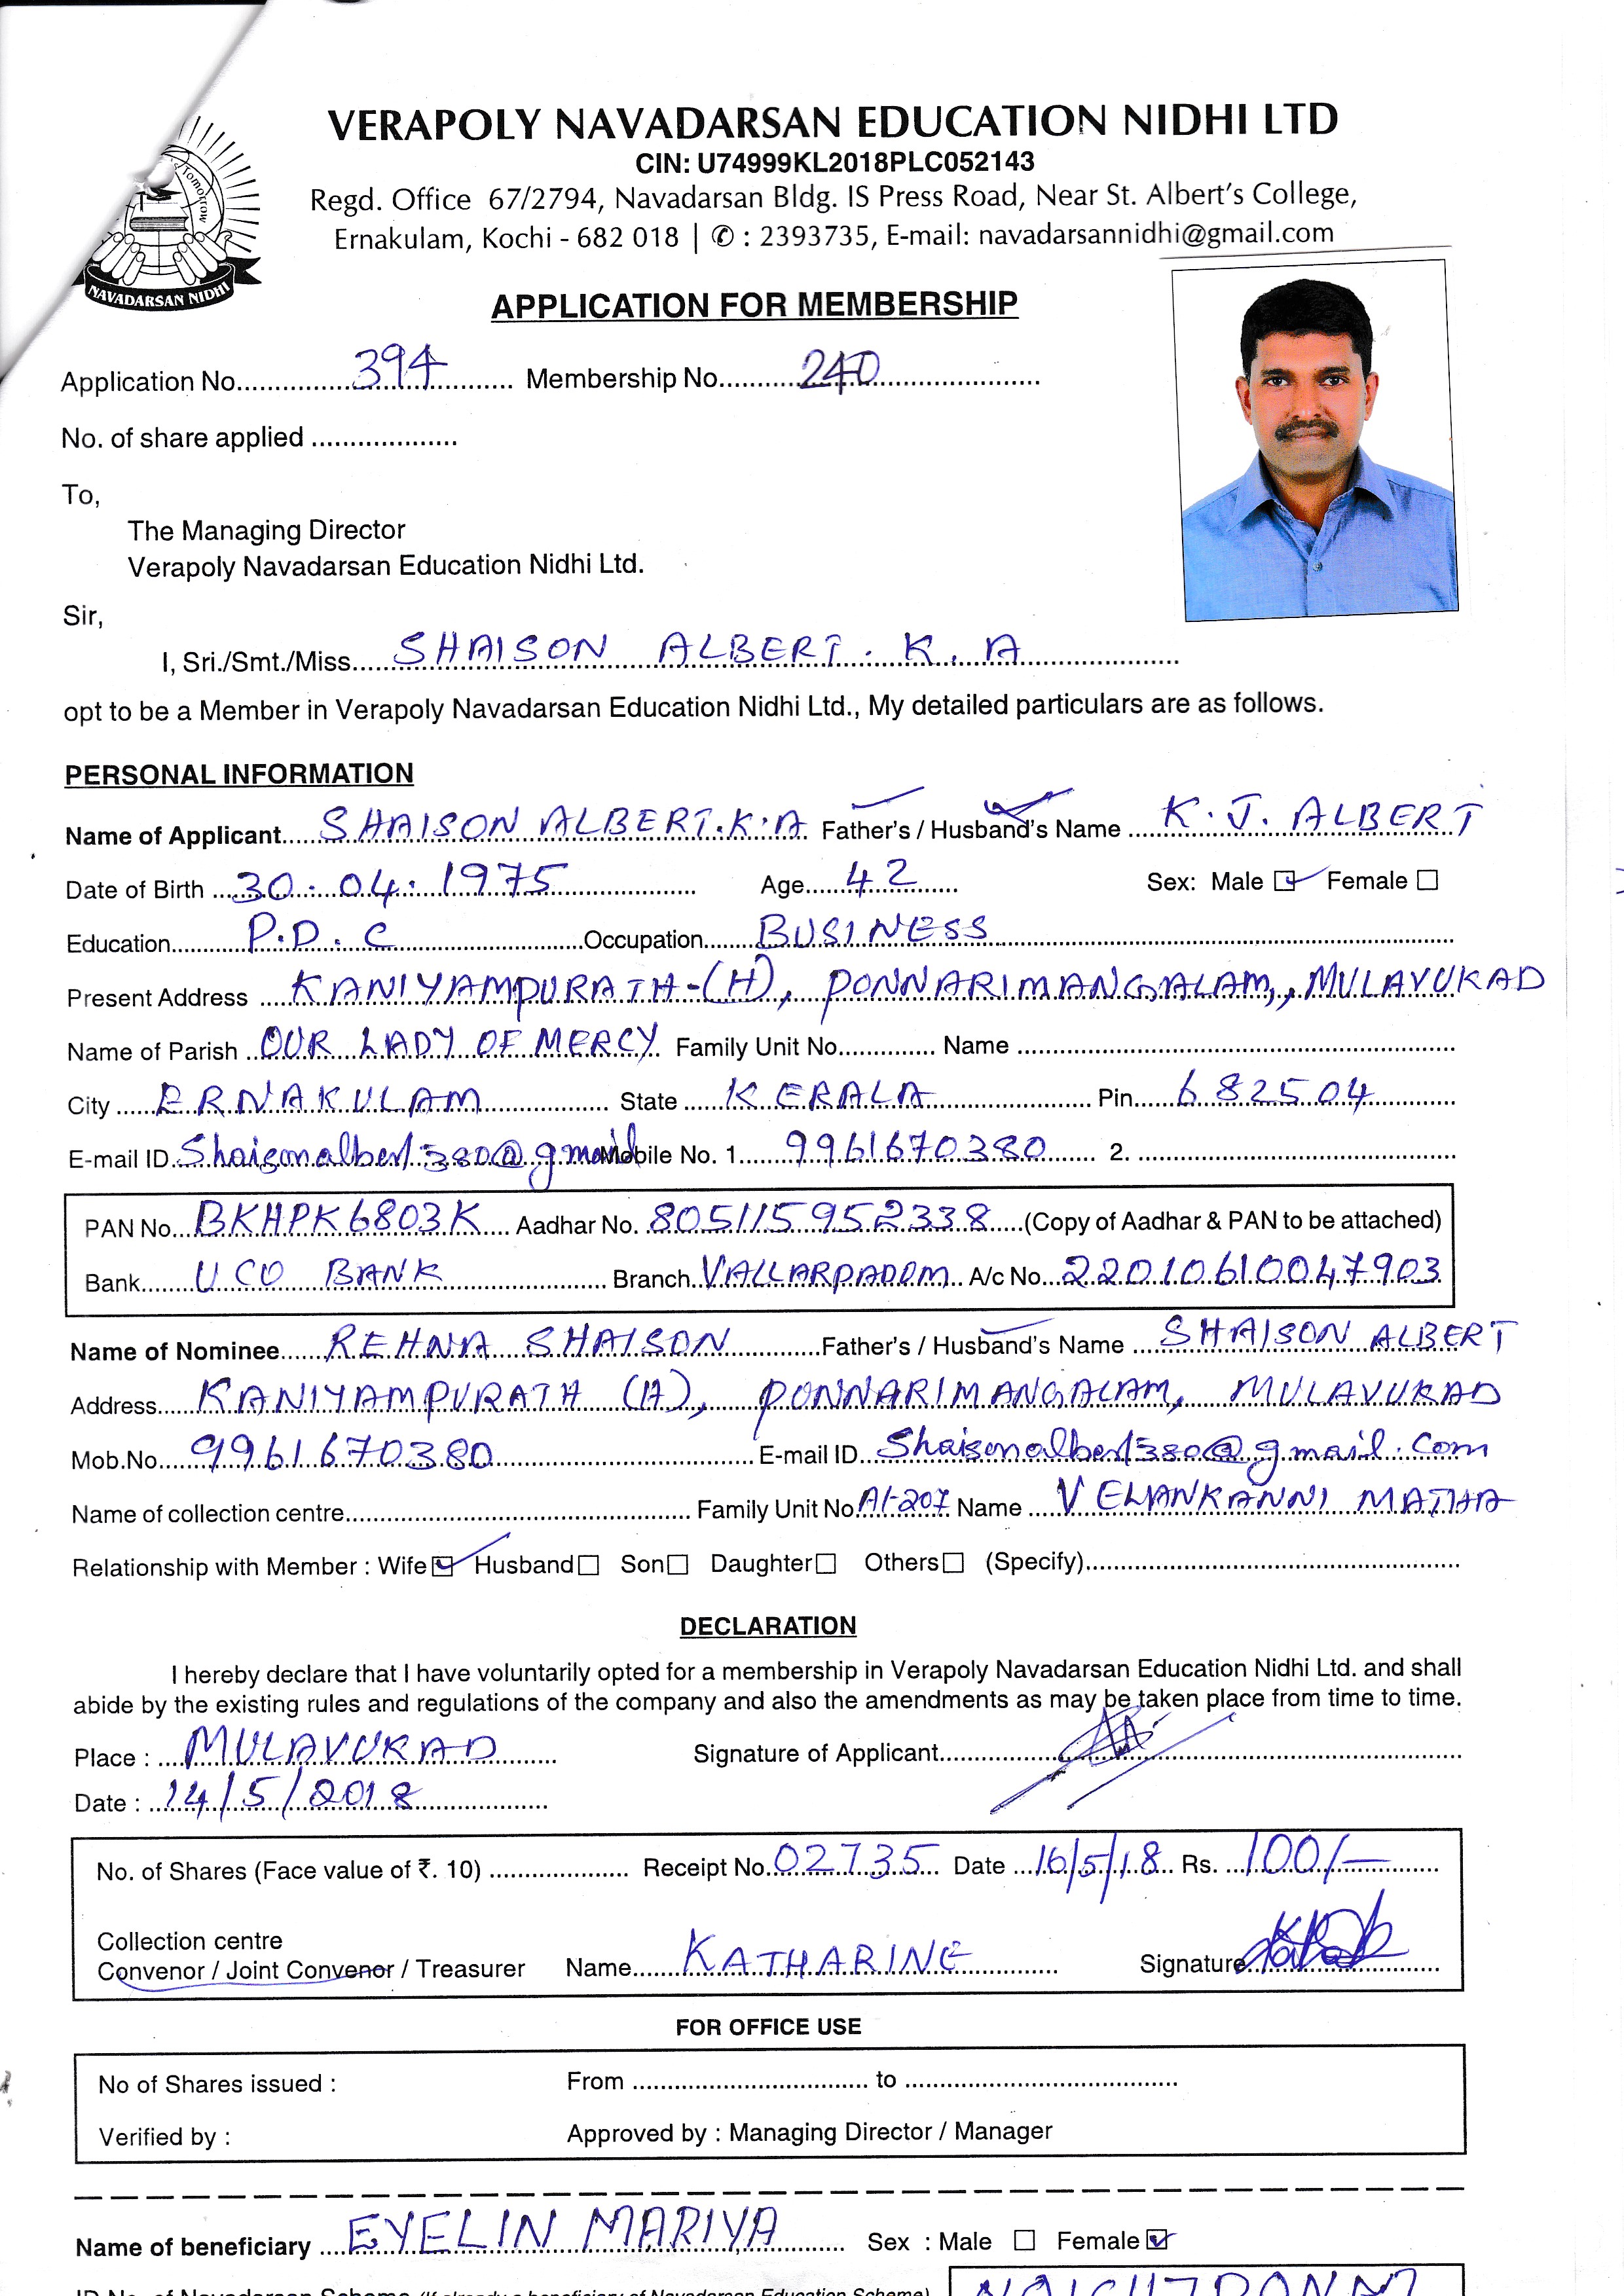 VERAPOLY NAVADARSAN EDUCATION NIDHI LTD
CIN: U74999KL2018PLC052143
Regd. Office 67/2794, Navadarsan Bldg. IS Press Road, Near St. Albert's College,
Ernakulam, Kochi - 682 018 | ✆ : 2393735, E-mail: navadarsannidhi@gmail.com
Tomorrow
NAVADARSAN NIDHI
APPLICATION FOR MEMBERSHIP
Application No. 394 Membership No. 240
No. of share applied
To,
The Managing Director
Verapoly Navadarsan Education Nidhi Ltd.
Sir,
I, Sri./Smt./Miss. SHAISON ALBERT. K. A
opt to be a Member in Verapoly Navadarsan Education Nidhi Ltd., My detailed particulars are as follows.
PERSONAL INFORMATION
Name of Applicant SHAISON ALBERT.K.A Father's / Husband's Name K. J. ALBERT
Date of Birth 30. 04. 1975 Age 42 Sex: Male ☑ Female ☐
Education P.D.C Occupation BUSINESS
Present Address KANIYAMPURATH-(H), PONNARIMANGALAM, MULAVUKAD
Name of Parish OUR LADY OF MERCY Family Unit No. Name
City ERNAKULAM State KERALA Pin 682504
E-mail ID Shaisonalbert380@gmail Mobile No. 1 9961670380 2.
PAN No. BKHPK6803K Aadhar No. 805115952338 (Copy of Aadhar & PAN to be attached)
Bank UCO BANK Branch VALLARPADOM A/c No. 22010610047903
Name of Nominee REHNA SHAISON Father's / Husband's Name SHAISON ALBERT
Address KANIYAMPURATH (H), PONNARIMANGALAM, MULAVUKAD
Mob.No. 9961670380 E-mail ID Shaisonalbert380@gmail.com
Name of collection centre Family Unit No. A1-207 Name VELANKANNI MATHA
Relationship with Member : Wife ☑ Husband ☐ Son ☐ Daughter ☐ Others ☐ (Specify)
DECLARATION
I hereby declare that I have voluntarily opted for a membership in Verapoly Navadarsan Education Nidhi Ltd. and shall
abide by the existing rules and regulations of the company and also the amendments as may be taken place from time to time.
Place : MULAVUKAD Signature of Applicant
Date : 14/5/2018
No. of Shares (Face value of ₹. 10) Receipt No. 02735 Date 16/5/18 Rs. 100/-
Collection centre
Convenor / Joint Convenor / Treasurer Name KATHARINE Signature
FOR OFFICE USE
No of Shares issued : From to
Verified by : Approved by : Managing Director / Manager
Name of beneficiary EVELIN MARIYA Sex : Male ☐ Female ☑